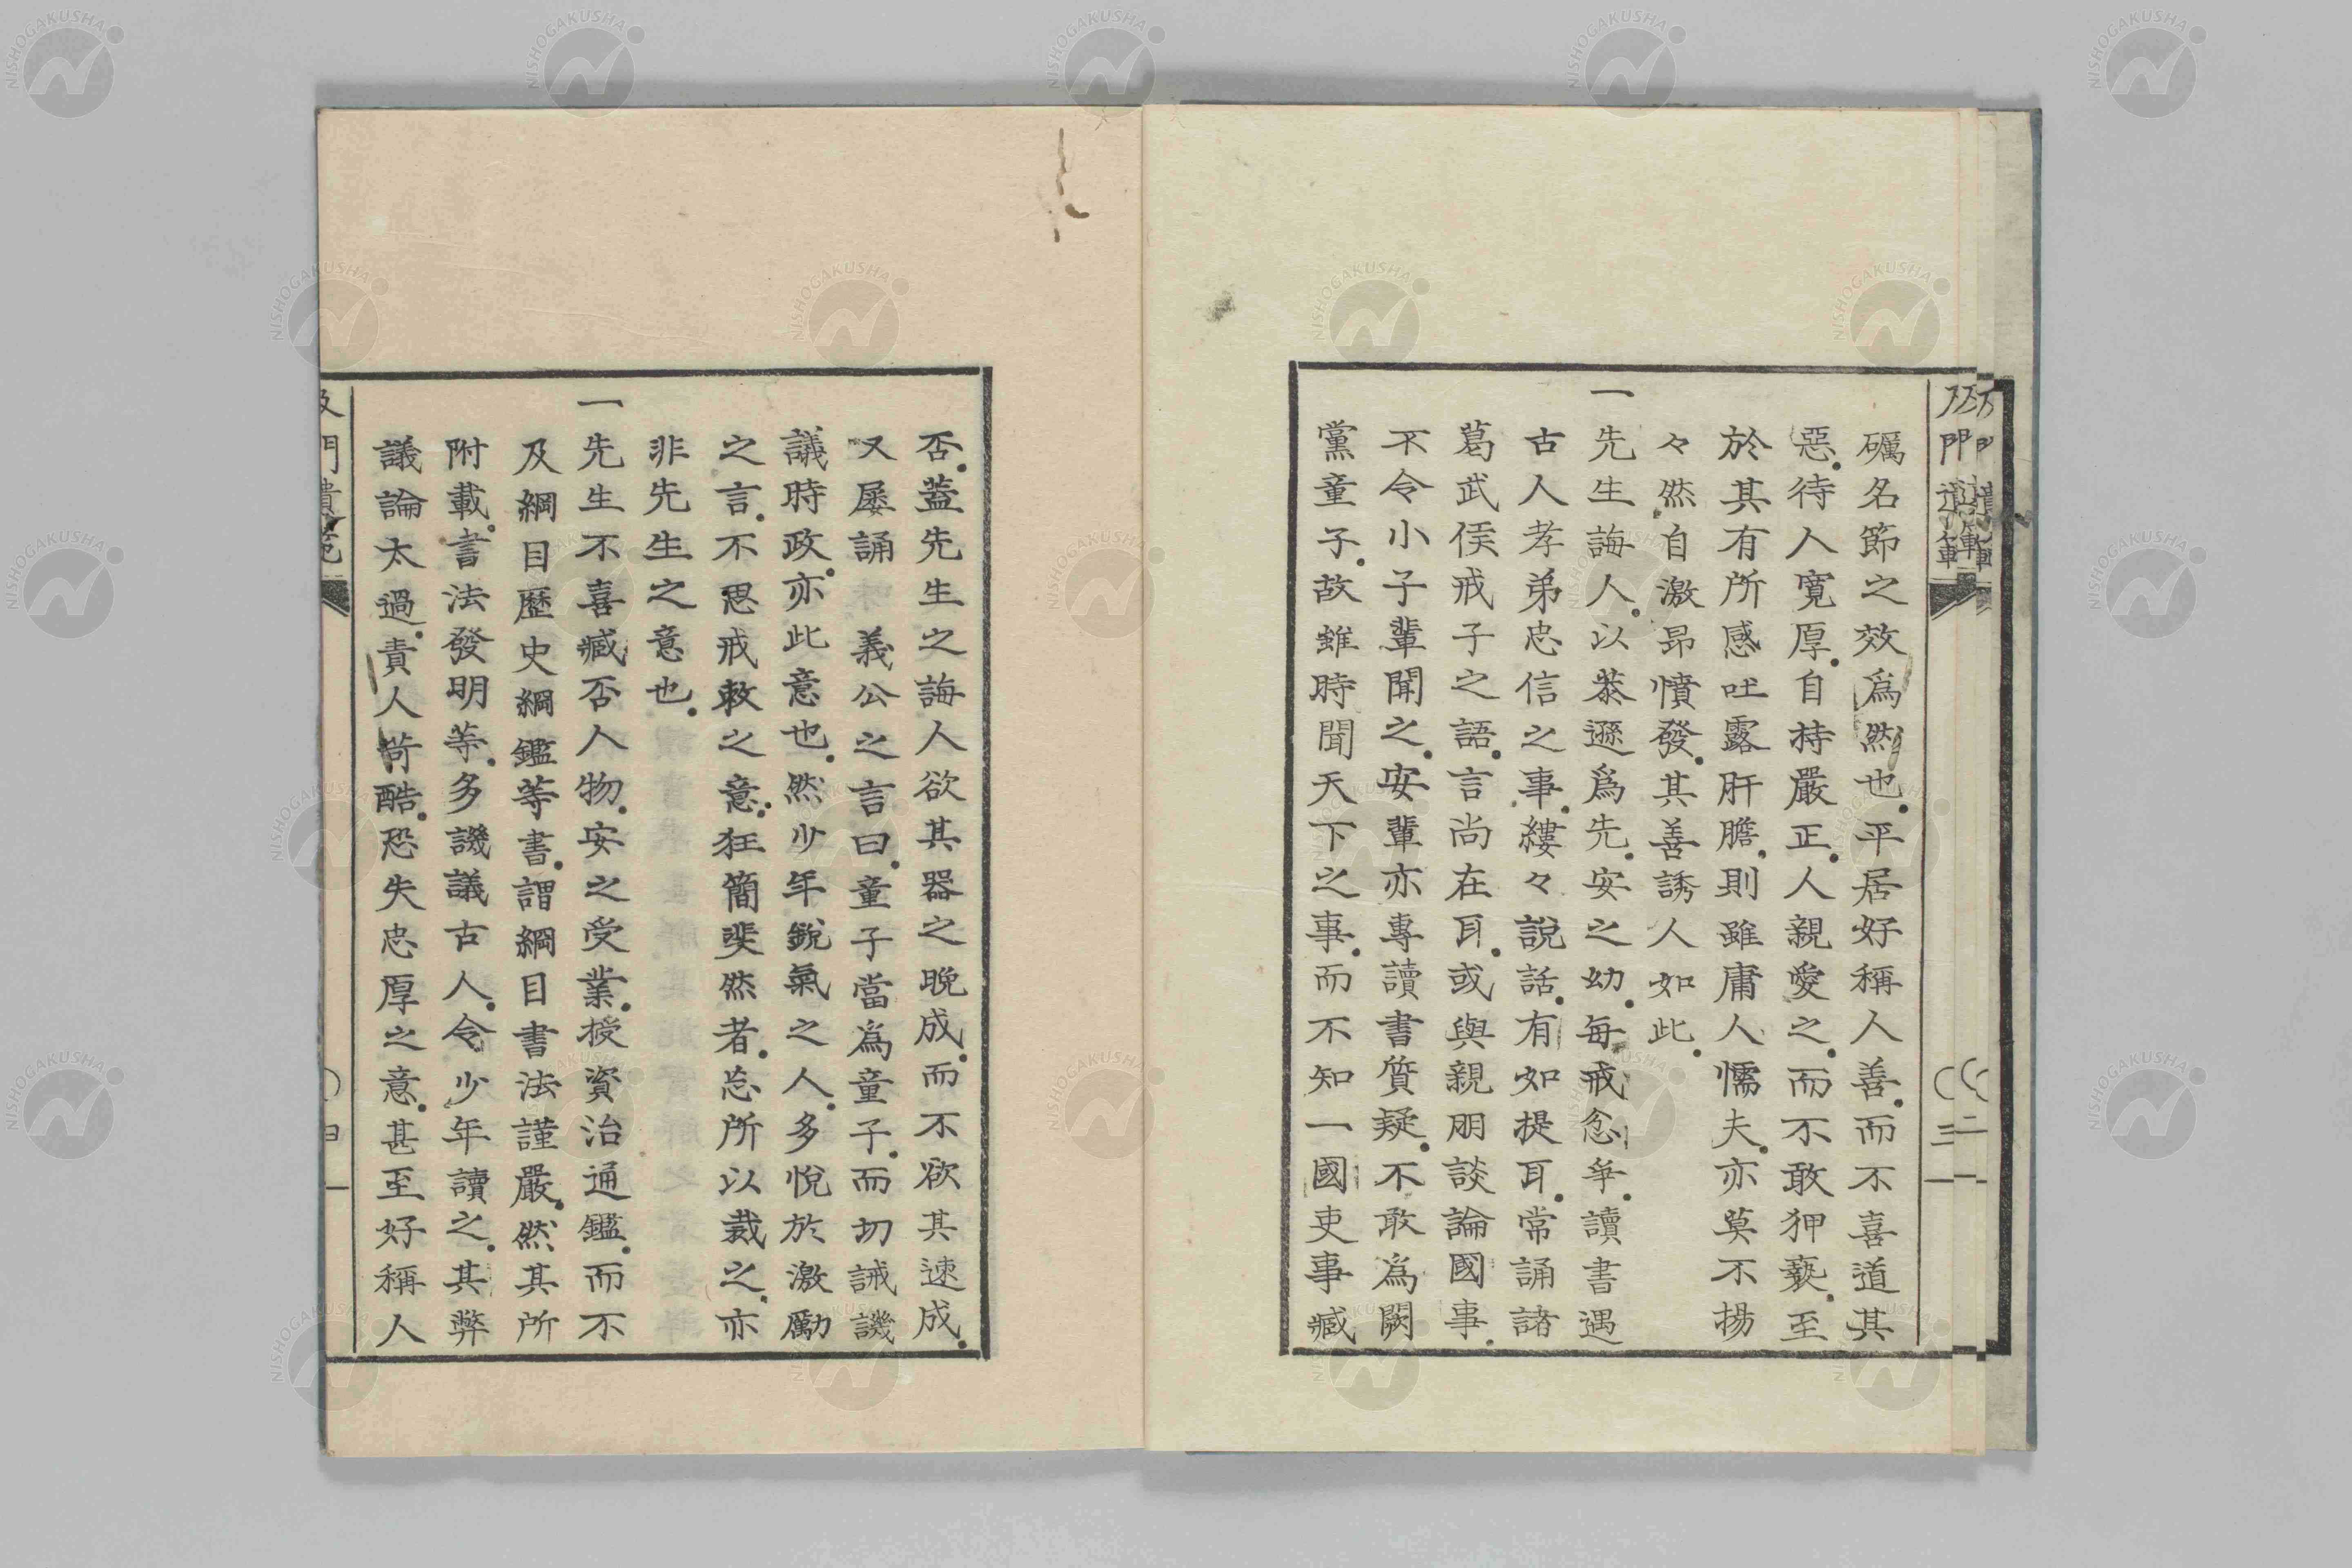 礪名節之效爲然也平居好稱人善而不喜道其
惡待人寬厚自持嚴正人親愛之而不敢狎褻至
於其有所感吐露肝膽則雖庸人懦夫亦莫不揚
々然自激昂憤發其善誘人如此
一先生誨人以恭遜爲先安之幼每戒忿爭讀書遇
古人孝弟忠信之事縷々說話有如提耳常誦諸
葛武侯戒子之語言尚在耳或與親朋談論國事
不令小子輩聞之安輩亦專讀書質疑不敢爲闕
黨童子故雖時聞天下之事而不知一國吏事臧
否蓋先生之誨人欲其器之晚成而不欲其速成
又屢誦義公之言曰童子當爲童子而切誡譏
議時政亦此意也然少年銳氣之人多悅於激勵
之言不思戒敕之意狂簡斐然者忘所以裁之亦
非先生之意也
一先生不喜臧否人物安之受業授資治通鑑而不
及綱目歷史綱鑑等書謂綱目書法謹嚴然其所
附載書法發明等多譏議古人令少年讀之其弊
議論太過責人苛酷恐失忠厚之意甚至好稱人
NISHOGAKUSHA